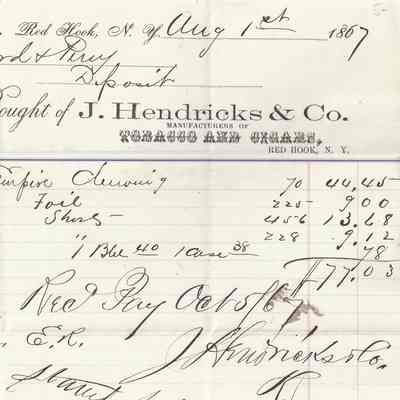 Red Hook, N. Y. Aug 1st 1867
Deposit
Bought of J. Hendricks & Co.
MANUFACTURERS OF
TOBACCO AND CIGARS,
RED HOOK, N. Y.
Empire Chewing 70 44.45
Foil 225 9 00
Shorts 456 13.68
" 228 9.12
1 Bbl 40 1 Case 38 78
$77.03
Recd Pay Oct 5/67
E.R. J Hendricks & Co.